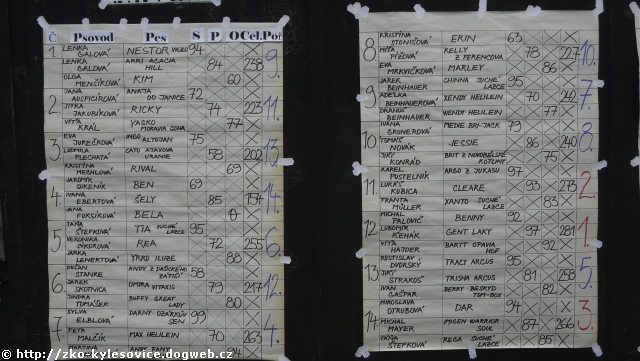 Č Psovod Pes S P O Cel. Poř
1 LENKA GALOVÁ NESTOR 94
LENKA GALOVÁ ARRI ACACIA HILL 84 238 9.
OLGA MENČÍKOVÁ KIM 60
JANA AUSPICIROVÁ ANAJA OD JANICE 72
2 JITKA JAKUBÍKOVÁ RICKY 74 223 11.
VÍŤA KRÁL YASKO MORAVIA 77
EVA JUREČKOVÁ INGO ALTOJAN 75
3 LUDMILA PLECHATÁ CATO ATAXOVA URANIE 58 202 13.
KRISTÝNA MECHLOVÁ RIVAL 69
JAROMÍR DIKENÍK BEN 69
4. IVANA EBERTOVÁ ŠELY 85 154 14.
JANA FUKSÍKOVÁ BELA 0
TÁŇA ŠTEFKOVÁ TIA SUCHÉ LAZCE 95
5 VERONIKA SÝKOROVÁ REA 72 255 6.
JARKA LENERTOVÁ YRKO ILUZE 88
DUŠAN STANKE ANDY Z DAŇCKÉHO ZÁTIŠÍ 58
6 JAREK SKOTNICA OMIRA VITAXIS 79 217 12.
JINDRA TOMÁŠEK BUFFY GREAT LADY 80
SYLVA ELBLOVÁ DARNY OZÁRKŮV SEN 99
7 PETR MALČÍK MAX HELEIN 70 263 4.
MARTINA ANDY FANY 94
KRISTÝNA STONIŠOVÁ ERIN 63
8. MÍŠA PÝŽOVÁ KELLY Z FERENCOVA 78 227 10.
EVA MRKVIČKOVÁ MARLEY 86
JAREK BEINHAUER CHINNA SUCHÉ LAZCE 95
9 ADÉLKA BEINHAUEROVÁ XENDY HELEIN 70 242 7.
DRAHUŠ BEINHAUER WENDY HELEIN 77
IVANA GRUNEROVÁ MEDIE BRI-JACK 79
10 TOMÁŠ NOVÁK JESSIE 86 240 8.
JIŘÍ KONRÁD BRIT Z NOVOBĚLSKÉ KOTLINY 75
KAREL PUSTELNÍK ARGO Z JUKASU 97
11. LUKÁŠ KUBICA CLEARE 93 273 2.
FRANTA MÜLLER XANTO SUCHÉ LAZCE 83
MICHAL PALOVIČ BENNY 92
12 LUBOMÍR ŘEHÁK GENT LAKY 97 281 1.
VÍŤA HAJDER BARTT OPAVA HOF 92
ROSTISLAV DVORSKÝ TRACI ARCUS 95
13 JIŘÍ STRAKOŠ TRISHA ARCUS 81 258 5.
IVAN GAŠPAR BERRY BESKYD TOM-BOY 82
MIROSLAVA OTRUBOVÁ DAR 94
14 MICHAL MAYER IMOGEN WARRIOR SOUL 87 266 3.
TÁŇA ŠTEFKOVÁ REGA SUCHÉ LAZCE 85
http://zko-kylesovice.dogweb.cz